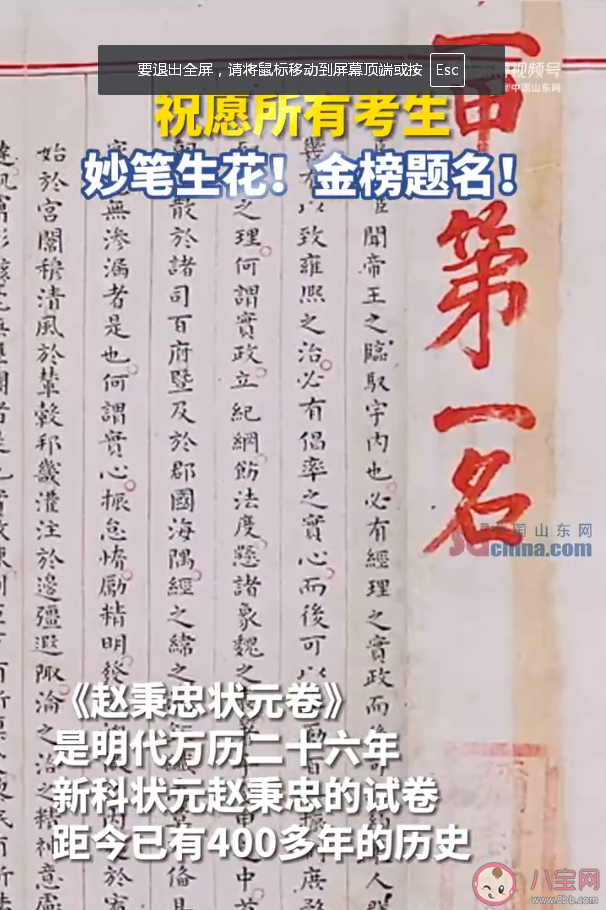 要退出全屏，请将鼠标移动到屏幕顶端或按 Esc
视频号
@中国山东网
祝愿所有考生
妙笔生花！金榜题名！
第一名
聞帝王之臨馭宇內也必有經理之實政而
以致雍熙之治必有倡率之實心而後可以
之理何謂實政立紀綱飭法度懸諸象魏之
散於諸司百府暨及於郡國海隅經之緯之
無滲漏者是也何謂實心振怠惰勵精明發
始於宮闈穆清風於輦轂邦畿灌注於邊疆遐陬淪之洽之精神意慮
国山东网
sdchina.com
《赵秉忠状元卷》
是明代万历二十六年
新科状元赵秉忠的试卷
距今已有400多年的历史
八宝网
www.8bb.com